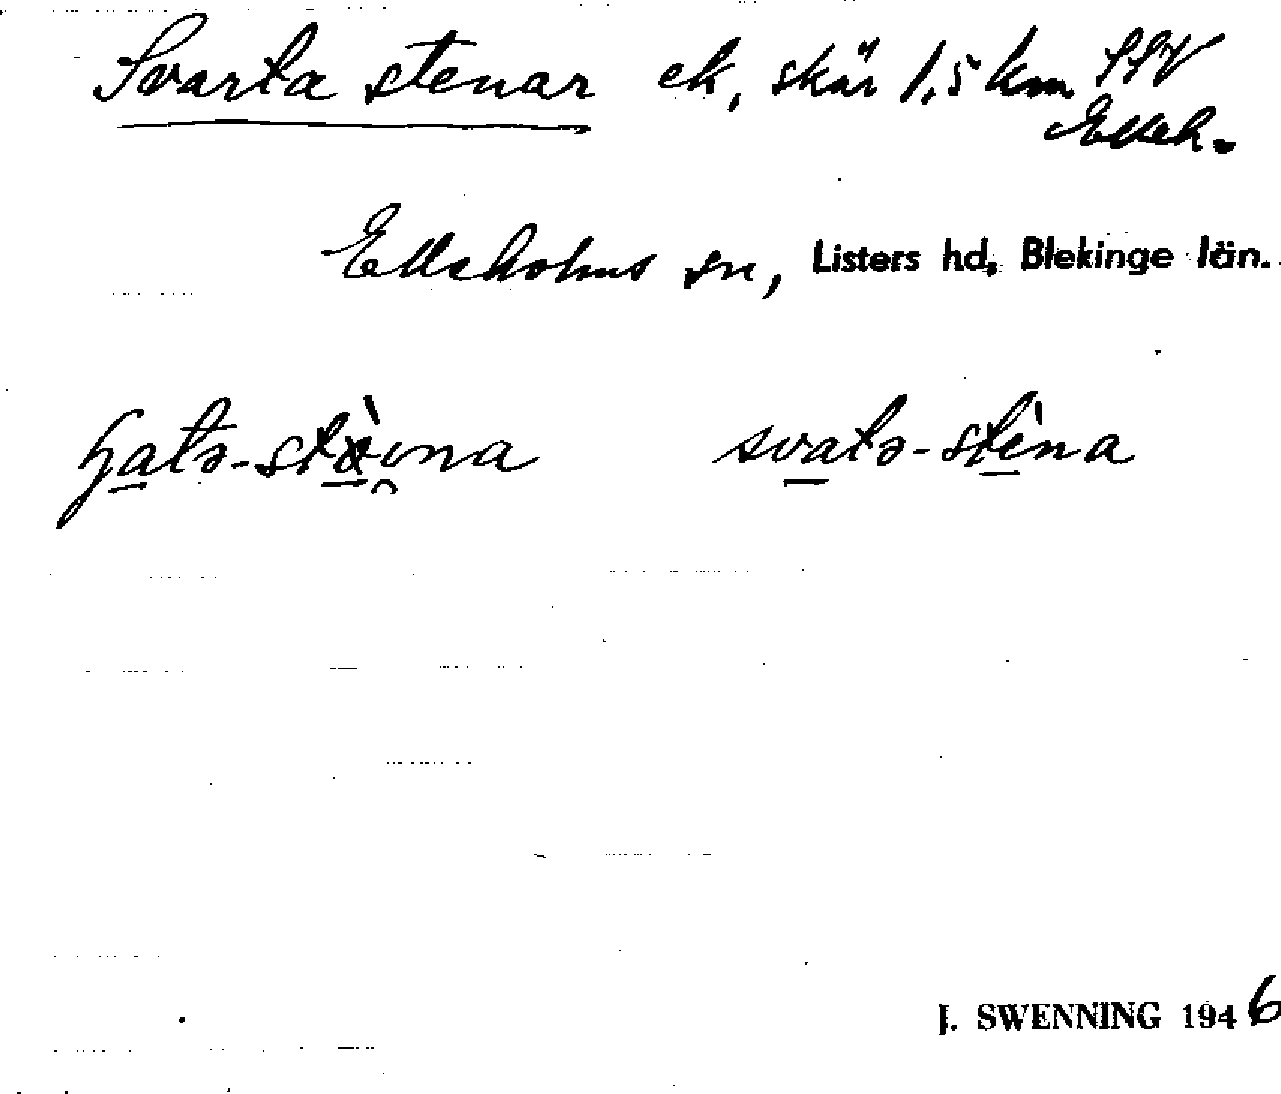 Svarta stenar ek, skär 1,5 km SSV
Elleh.
Elleholms sn, Listers hd, Blekinge län.
svatə-stèna
J. SWENNING 1946